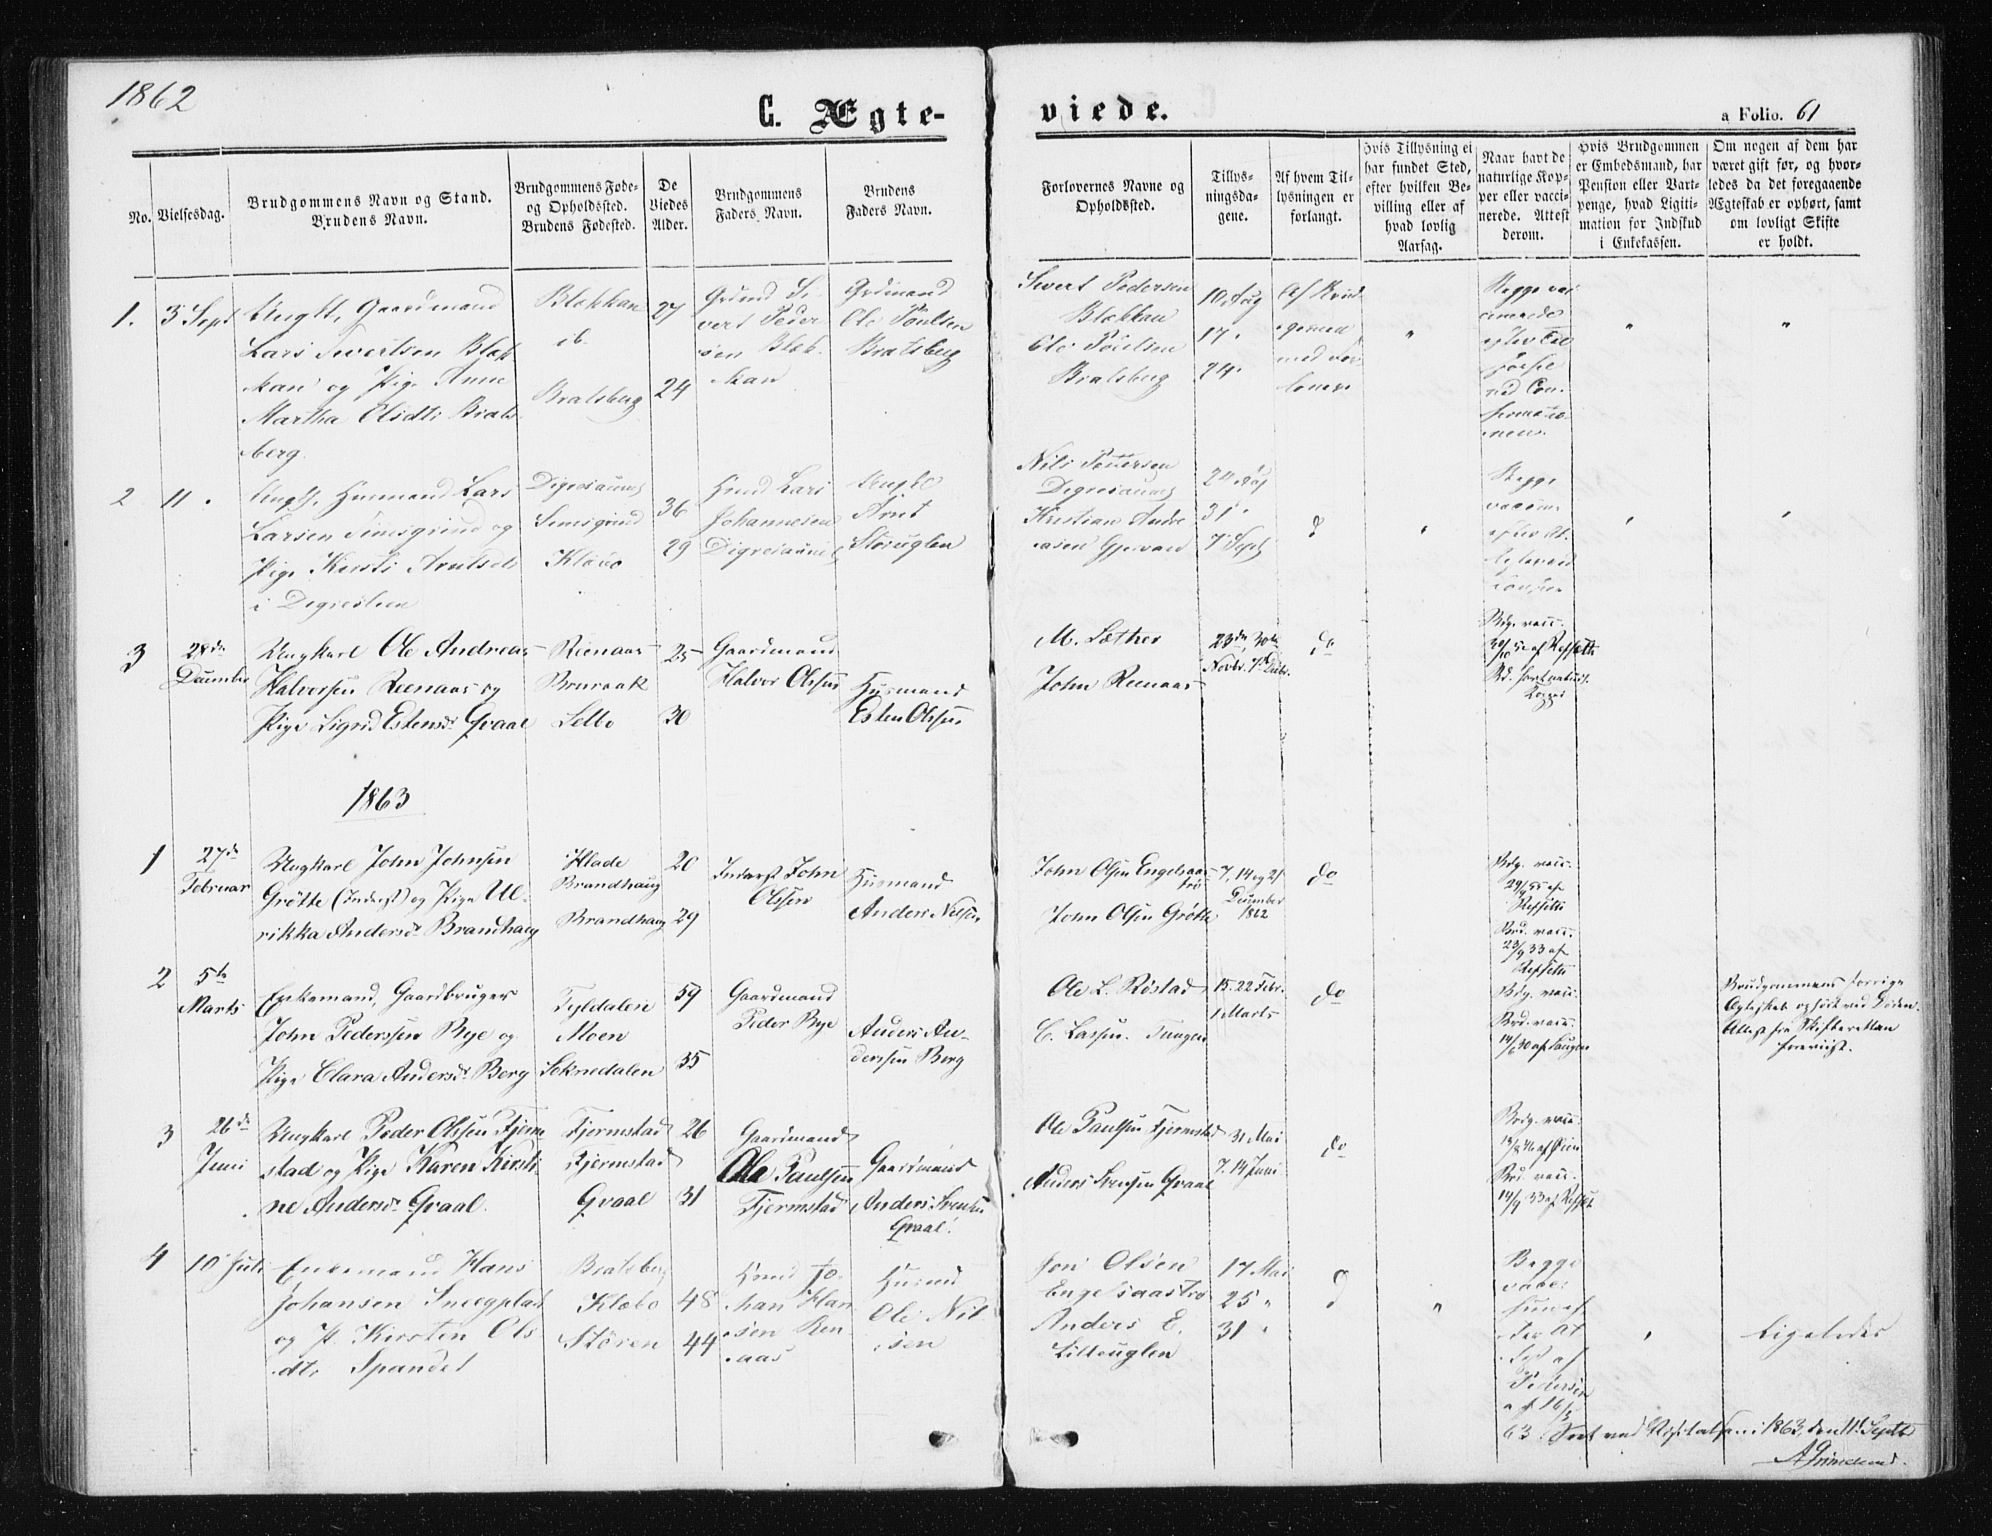 1862
C. Ægte-
viede.
a Folio. 61
No.
Vielsesdag.
Brudgommens Navn og Stand.
Brudens Navn.
Brudgommens Føde-
og Opholdsted.
Brudens Fødested.
De
Viedes
Alder.
Brudgommens
Faders Navn.
Brudens
Faders Navn.
Forlovernes Navne og
Opholdssted.
Tillys-
ningsda-
gene.
Af hvem Til-
lysningen er
forlangt.
Hvis Tillysning ei
har fundet Sted,
efter hvilken Be-
villing eller af
hvad lovlig
Aarsag.
Naar havt de
naturlige Kop-
per eller vacci-
nerede. Attest
derom.
Hvis Brudgommen
er Embedsmand, har
Pension eller Vart-
penge, hvad Ligiti-
mation for Indskud
i Enkekassen.
Om nogen af dem har
været gift før, og hvor-
ledes da det foregaaende
Ægteskab er ophørt, samt
om lovligt Skifte
er holdt.
1. 3 Sept
Ungk. Gaardmand
Lars Sivertsen Blæk
kan og Pige Anne
Martha Olsdtr Brats
berg
Blækkan
ib.
Bratsberg
27
24
Grdmd Si-
vert Peder
sen Blæk-
kan
Grdmand
Ole Poulsen
Bratsberg
Sivert Pedersen
Blækkan
Ole Poulsen
Bratsberg
10 Aug
17.
24.
Af Brud
gommen
med For
lovere
Begge vac
cinerede
"
"
"
2 11 .
Ungk. Husmand Lars
Larsen Simsgrind og
Pige Kirsti Arntsdt
i Digresteen
Digresaunet
Simsgrind
Klæbo
36
29
Hmd Lars
Johannesen
Digresaunet
Ungkl
Arnt
Storuglen
Nils Pettersen
Digresaunet
Kristian Andre
asen Gjervan
24 Aug
31.
7 Sept
d
Begge
3 28de
December
Ungkarl Ole Andreas
Halvorsen Reenaas og
Pige Sigrid Estensdr Qvaal
Reenaas
Bruraak
Selbo
25
30
Gaardmand
Halvor Olssen
Husmand
Esten Olssen
M. Sæther
John Reenaas
23de, 30te
Novbr. 7de Decbr.
do
Bdg. vacc.
1863
1 27de
Februar
Ungkarl John Johnsen
Grøtte (Inderst) og Pige Ul-
rikka Andersdr Brandhaug
Hlade
Brandhaug
Brandhaug
20
29
Inderst John
Olssen
Husmand
Anders Nilsen
John Olsen Engelsaas-
trø
John Olsen Grøtte
7, 14 og 21
December
1862
do
Bdg. vacc.
29/9 55 af
Refsetti
Brd. vacc.
23/9 33 af
Refsetti
2 5te
Marts
Enkemand, Gaardbruger
John Pederssen Rye og
Pige Clara Andersdr Berg
Tyldalen
Moen
Soknedalen
59
35
Gaardmand
Peder Rye
Anders An-
derssen Berg
Ole L. Røstad
C. Larsen. Tangen
15. 22 Febr.
1 Marts
do
Bdg. vacc.
Brd. vacc.
14/6 30 af Haugen
Brudgommens forrige
Ægteskab ophørt ved Døden.
Attest fra Skifteretten
foreviist.
3 26de
Juni
Ungkarl Peder Olssen Fjerm
stad og Pige Karen Kirsti-
ne Andersdr Qvaal.
Fjermstad
Fjermstad
Qvaal
26
31
Gaardmand
Ole Paulsen
Fjermstad
Gaardmand
Anders Svensen
Qvaal.
Ole Paulsen Fjermstad
Anders Svensen Qvaal
31 Mai
7. 14 Juni
do
Brdg. vacc.
13/8 46 af Øien
Brd. vacc.
14/9 33 af Refset
4 10 Juli
Enkemand Hans
Johansen Sneegplad
og P. Kirsten Ols
dtr Spandet
Bratsberg
Klæbo
Støren
48
44
Hmd Jo-
han Han
sen Ren
aas
Husmd
Ole Nil
sen
Jon Olsen
Engelsaastrø
Anders E.
Litleuglen
17 Mai
25 "
31 "
d
"
Begge
vacc.
hun ef
ter At
test af
Pedersen
af 16/5
63
Ligeledes
Seet ved Visitatsen i 1863, den 11te Septb
AGrimelund.